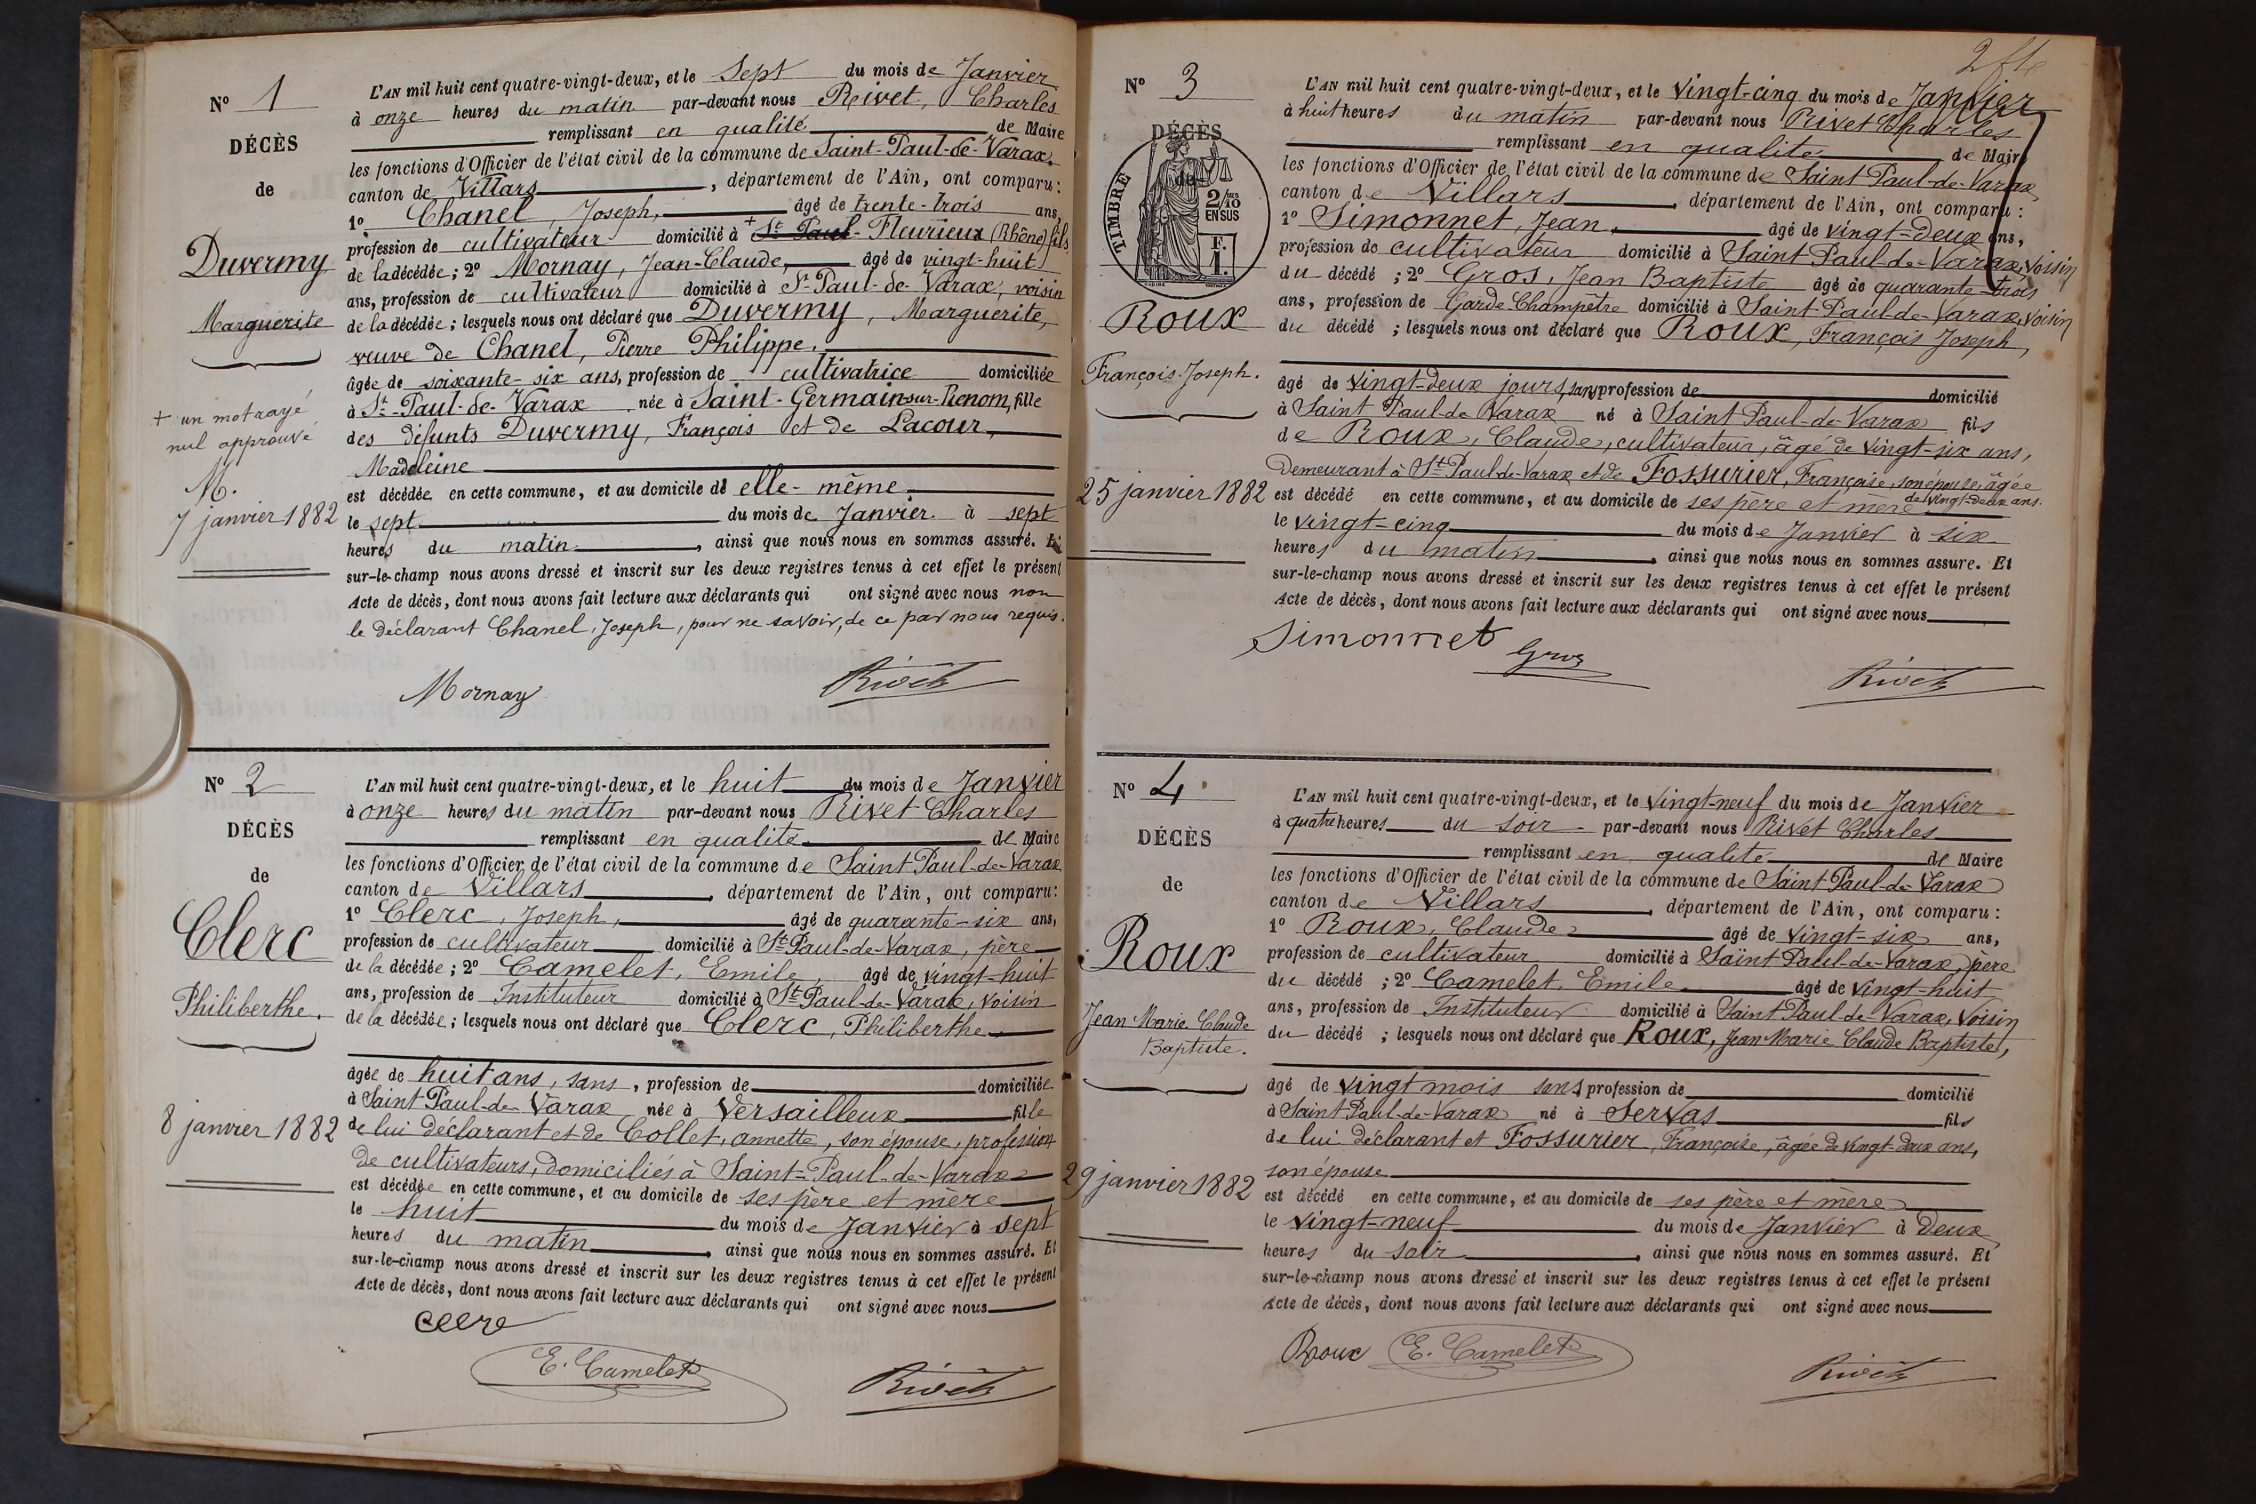 N° 1
DÉCÈS
de
Duvermy
Marguerite
+ un mot rayé
nul approuvé
7 janvier 1882
L'AN mil huit cent quatre-vingt-deux, et le sept du mois de Janvier
à onze heures du matin par-devant nous Rivet, Charles
remplissant en qualité de Maire
les fonctions d'Officier de l'état civil de la commune de Saint-Paul-de-Varax,
canton de Villars, département de l'Ain, ont comparu :
1° Chanel, Joseph, âgé de trente-trois ans,
profession de cultivateur domicilié à + St Paul - Fleurieux (Rhône) fils
de la décédée ; 2° Mornay, Jean-Claude, âgé de vingt-huit
ans, profession de cultivateur domicilié à St-Paul-de-Varax, voisin
de la décédée ; lesquels nous ont déclaré que Duvermy, Marguerite,
veuve de Chanel, Pierre Philippe.
âgée de soixante-six ans, profession de cultivatrice domiciliée
à St-Paul-de-Varax née à Saint-Germain-sur-Renom, fille
des défunts Duvermy, François et de Lacour,
Madeleine
est décédée en cette commune, et au domicile de elle-même
le sept du mois de Janvier à sept
heures du matin, ainsi que nous nous en sommes assuré. Et
sur-le-champ nous avons dressé et inscrit sur les deux registres tenus à cet effet le présent
Acte de décès, dont nous avons fait lecture aux déclarants qui ont signé avec nous non
le déclarant Chanel, Joseph, pour ne savoir, de ce par nous requis.
Mornay Rivet
N° 2
DÉCÈS
de
Clerc
Philiberthe.
8 janvier 1882
L'AN mil huit cent quatre-vingt-deux, et le huit du mois de Janvier
à onze heures du matin par-devant nous Rivet Charles
remplissant en qualité de Maire
les fonctions d'Officier de l'état civil de la commune de Saint Paul-de-Varax
canton de Villars, département de l'Ain, ont comparu :
1° Clerc, Joseph, âgé de quarante-six ans,
profession de cultivateur domicilié à St Paul-de-Varax, père
de la décédée ; 2° Camelet, Emile, âgé de vingt-huit
ans, profession de Instituteur domicilié à St Paul-de-Varax, voisin
de la décédée ; lesquels nous ont déclaré que Clerc, Philiberthe,
âgée de huit ans, sans, profession de domiciliée
à Saint Paul-de-Varax née à Versailleux fille
de lui déclarant et de Collet, annette, son épouse, profession
de cultivateurs, domiciliés à Saint-Paul-de-Varax
est décédée en cette commune, et au domicile de ses père et mère
le huit du mois de Janvier à sept
heures du matin, ainsi que nous nous en sommes assuré. Et
sur-le-champ nous avons dressé et inscrit sur les deux registres tenus à cet effet le présent
Acte de décès, dont nous avons fait lecture aux déclarants qui ont signé avec nous
Clerc
E. Camelet Rivet
N° 3
DÉCÈS
de
TIMBRE
2/10 EN SUS
F. 1.
Roux
François-Joseph.
25 janvier 1882
L'AN mil huit cent quatre-vingt-deux, et le vingt-cinq du mois de Janvier
à huit heures du matin par-devant nous Rivet Charles
remplissant en qualité de Maire
les fonctions d'Officier de l'état civil de la commune de Saint Paul-de-Varax
canton de Villars, département de l'Ain, ont comparu :
1° Simonnet, Jean, âgé de vingt-deux ans,
profession de cultivateur domicilié à Saint Paul-de-Varax, voisin
du décédé ; 2° Gros, Jean Baptiste âgé de quarante-trois
ans, profession de Garde Champêtre domicilié à Saint-Paul-de-Varax, voisin
du décédé ; lesquels nous ont déclaré que Roux, François Joseph,
âgé de vingt-deux jours, sans profession de domicilié
à Saint Paul-de-Varax né à Saint Paul-de-Varax fils
de Roux, Claude, cultivateur, âgé de vingt-six ans,
Demeurant à St Paul-de-Varax et de Fossurier, Françoise, son épouse, âgée
de vingt-deux ans.
est décédé en cette commune, et au domicile de ses père et mère
le vingt-cinq du mois de Janvier à six
heures du matin, ainsi que nous nous en sommes assuré. Et
sur-le-champ nous avons dressé et inscrit sur les deux registres tenus à cet effet le présent
Acte de décès, dont nous avons fait lecture aux déclarants qui ont signé avec nous
Simonnet Gros Rivet
N° 4
DÉCÈS
de
Roux
Jean-Marie Claude
Baptiste.
29 janvier 1882
L'AN mil huit cent quatre-vingt-deux, et le vingt-neuf du mois de Janvier
à quatre heures du soir par-devant nous Rivet Charles
remplissant en qualité de Maire
les fonctions d'Officier de l'état civil de la commune de Saint Paul-de-Varax
canton de Villars, département de l'Ain, ont comparu :
1° Roux, Claude âgé de vingt-six ans,
profession de cultivateur domicilié à Saint Paul-de-Varax, père
du décédé ; 2° Camelet, Emile âgé de vingt-huit
ans, profession de Instituteur domicilié à Saint Paul-de-Varax, voisin
du décédé ; lesquels nous ont déclaré que Roux, Jean Marie Claude Baptiste,
âgé de vingt mois sans profession de domicilié
à Saint Paul-de-Varax né à Servas fils
de lui déclarant et Fossurier, Françoise, âgée de vingt-deux ans,
son épouse
est décédé en cette commune, et au domicile de ses père et mère
le vingt-neuf du mois de Janvier à Deux
heures du soir, ainsi que nous nous en sommes assuré. Et
sur-le-champ nous avons dressé et inscrit sur les deux registres tenus à cet effet le présent
Acte de décès, dont nous avons fait lecture aux déclarants qui ont signé avec nous
Roux E. Camelet Rivet